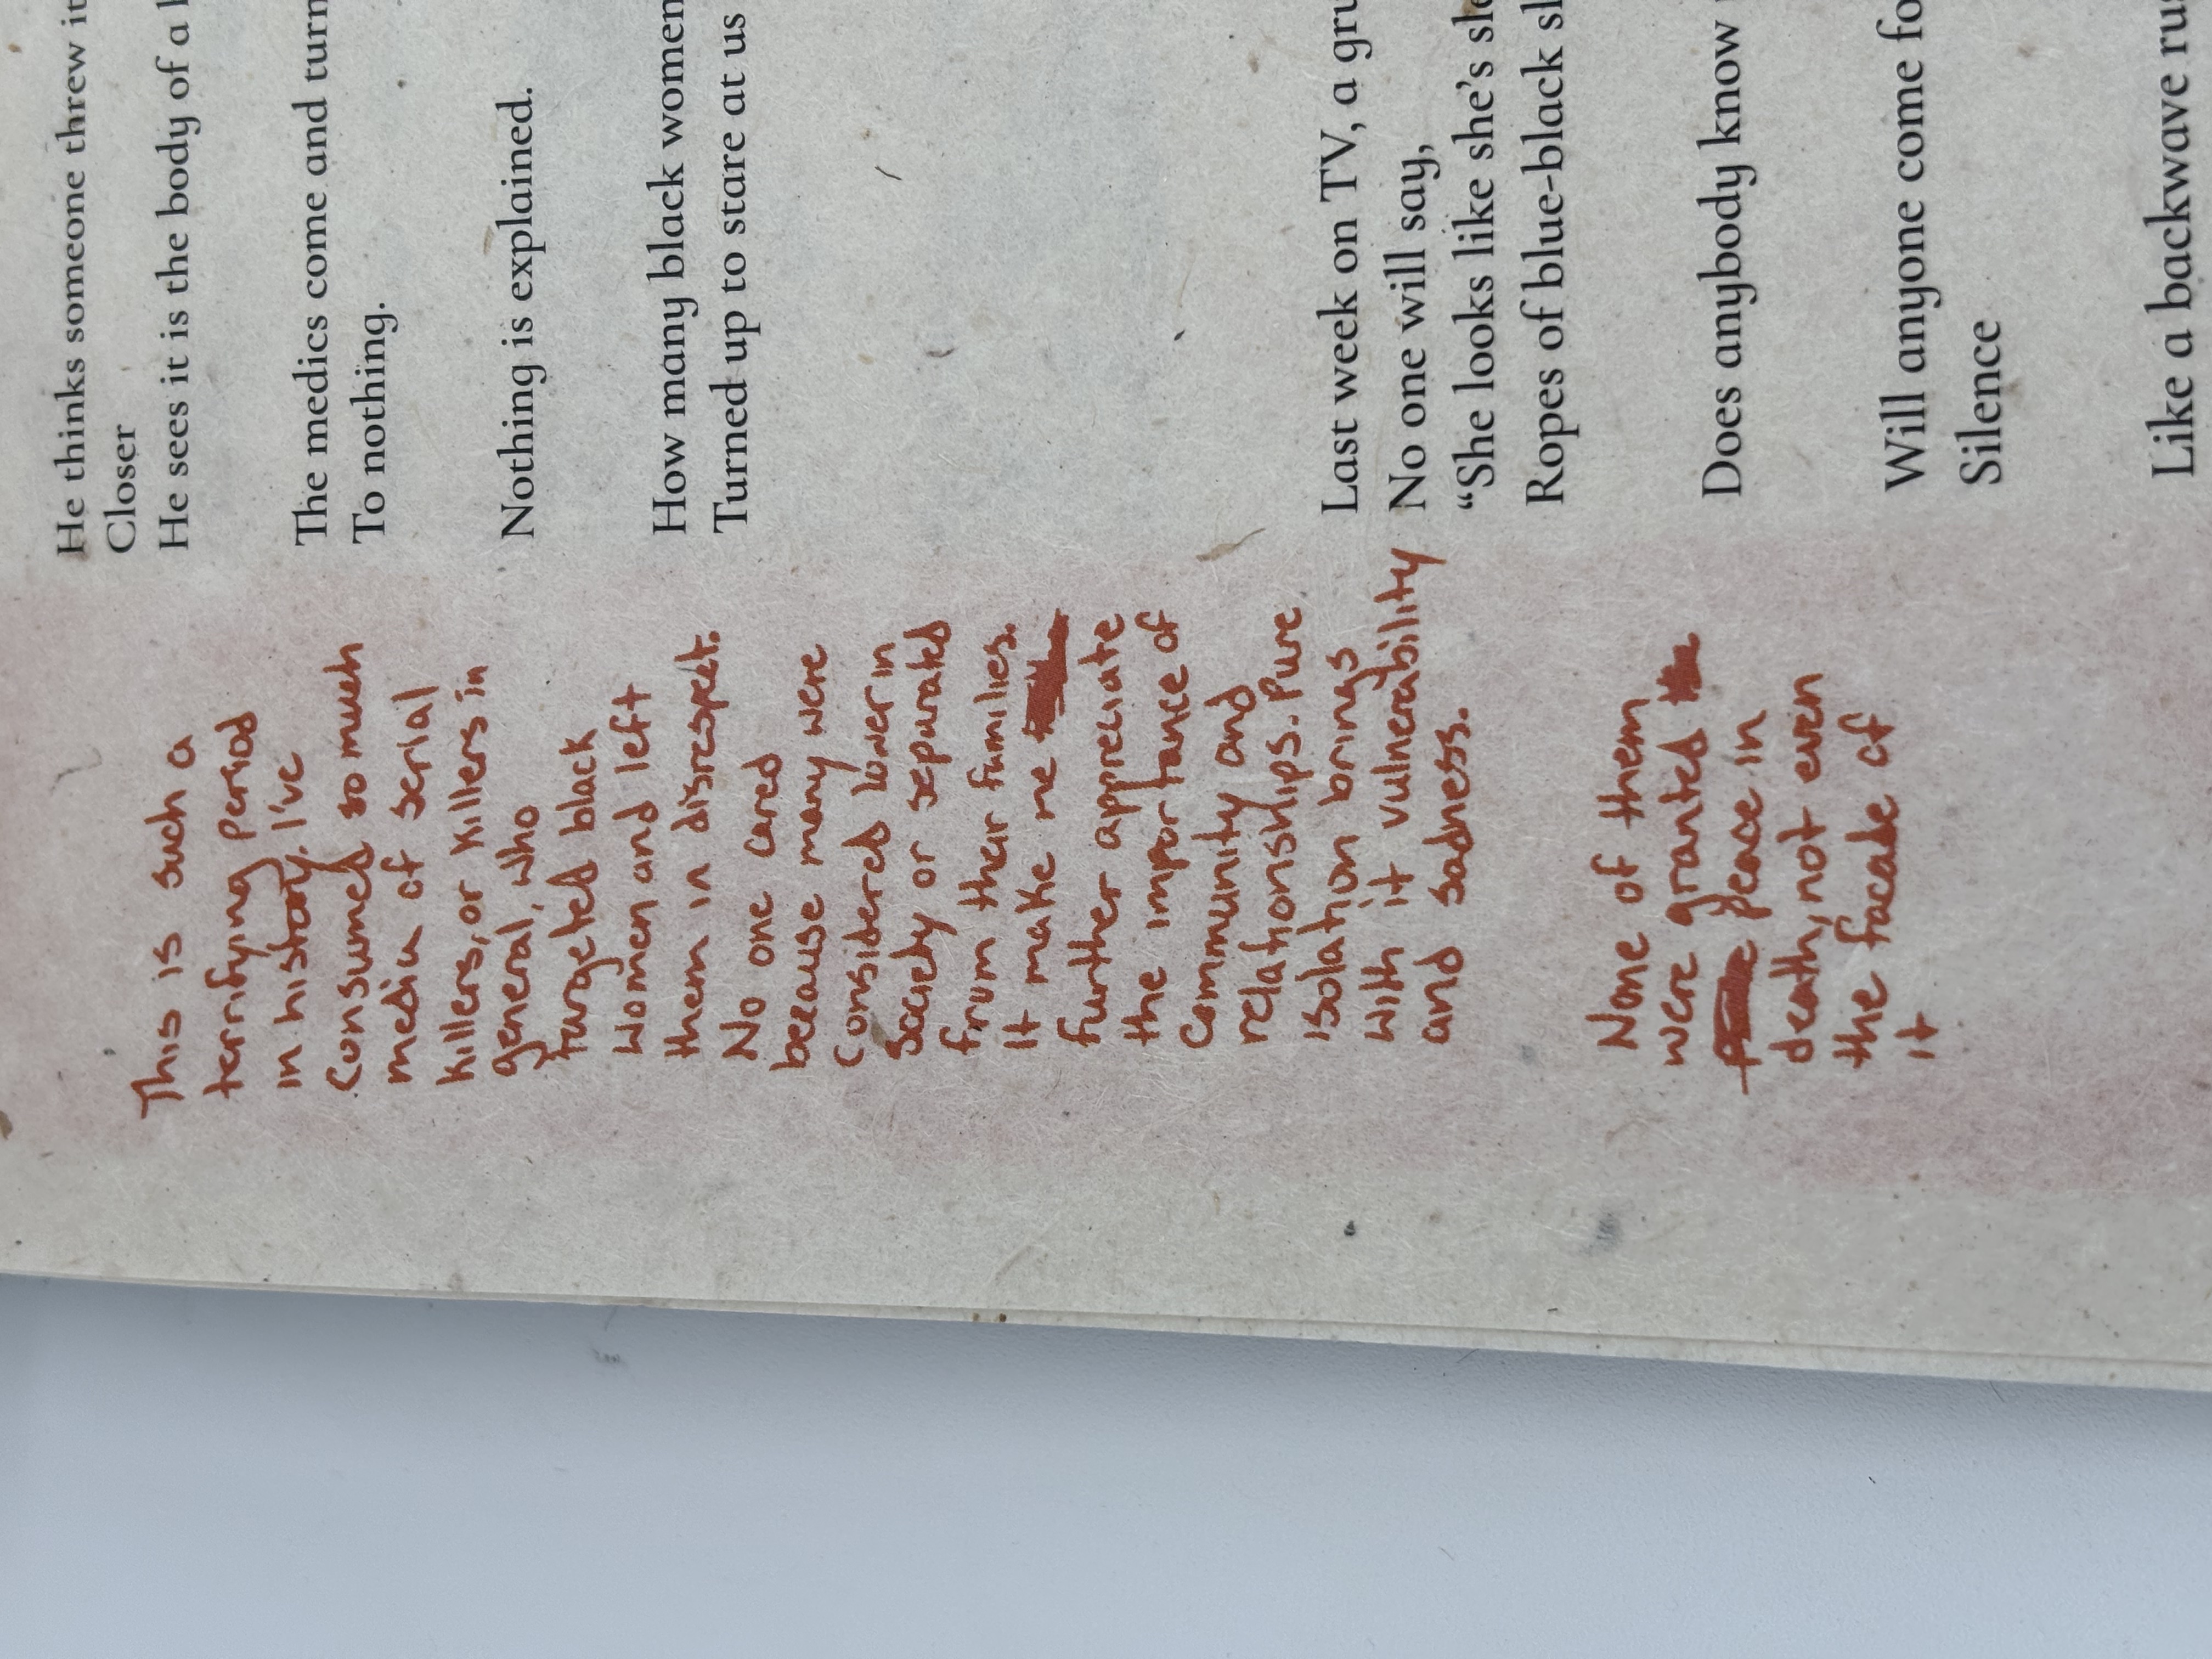 This is such a
terrifying period
in history. I've
Consumed so much
media of serial
killers, or killers in
general, who
targeted black
women and left
them in disrespect.
No one cared
because many were
considered lower in
society or separated
from their families.
It make me
further appreciate
the importance of
community and
relationships. Pure
isolation brings
with it vulnerability
and sadness.
None of them
were granted
peace in
death, not even
the facade of
it
He thinks someone threw it
Closer
He sees it is the body of a
The medics come and turn
To nothing.
Nothing is explained.
How many black women
Turned up to stare at us
Last week on TV, a gru
No one will say,
“She looks like she’s sle
Ropes of blue-black sl
Does anybody know
Will anyone come fo
Silence
Like a backwave rus